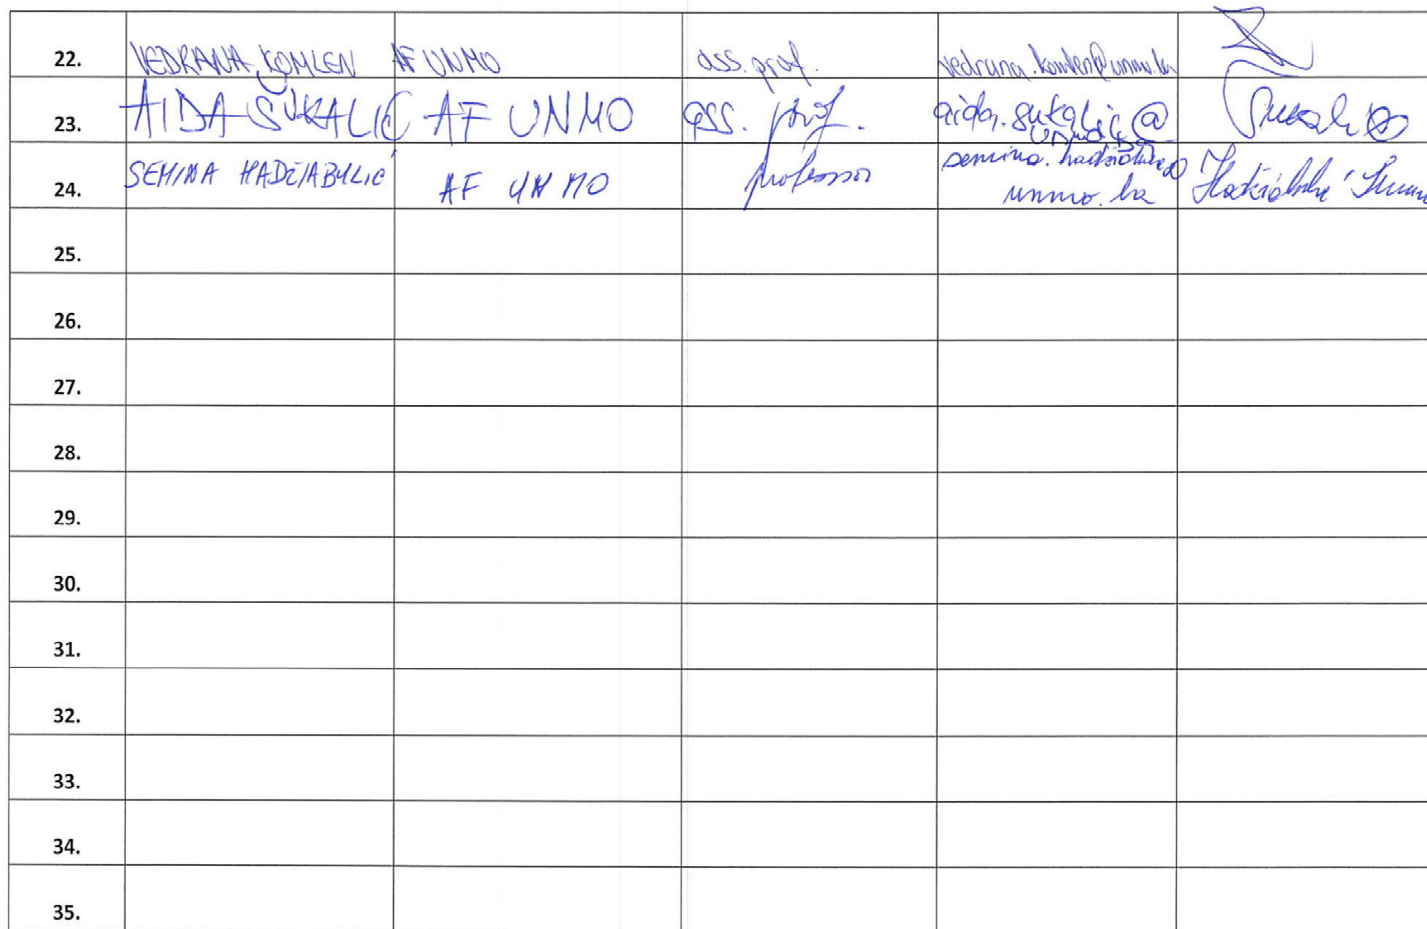 22. VEDRANA KOMLEN AF UNMO ass. prof. vedrana.komlen@unmo.ba
23. AIDA ŠUKALIĆ AF UNMO ass. prof. aida.sukalic@
24. SEMINA HADŽIABULIĆ AF UNMO professor semina.hadziabulic@
unmo.ba
25.
26.
27.
28.
29.
30.
31.
32.
33.
34.
35.